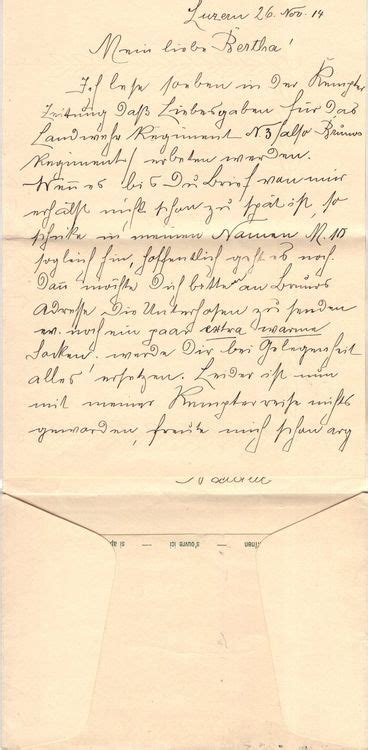 Luzern 26. Nov. 14
Mein liebe Bertha!
Ich lese soeben in der Kempter
Zeitung daß Liebesgaben für das
Landwehr Regiment N3 /also Brunos
Regiment/ erbeten werden.
Wenn es bis Du Brief von mir
erhälst nicht schon zu spät ist, so
schicke in meinem Namen M. 10
sogleich hin, hoffentlich geht es noch.
Dann möchte Dich bitten an Brunos
Adresse die Unterhosen zu senden
ev. noch ein paar extra warme
Socken. werde Dir bei Gelegenheit
alles ersetzen. Leider ist nun
mit meiner Kempterreise nichts
geworden, freute mich schon arg
s'ouvre ici — si